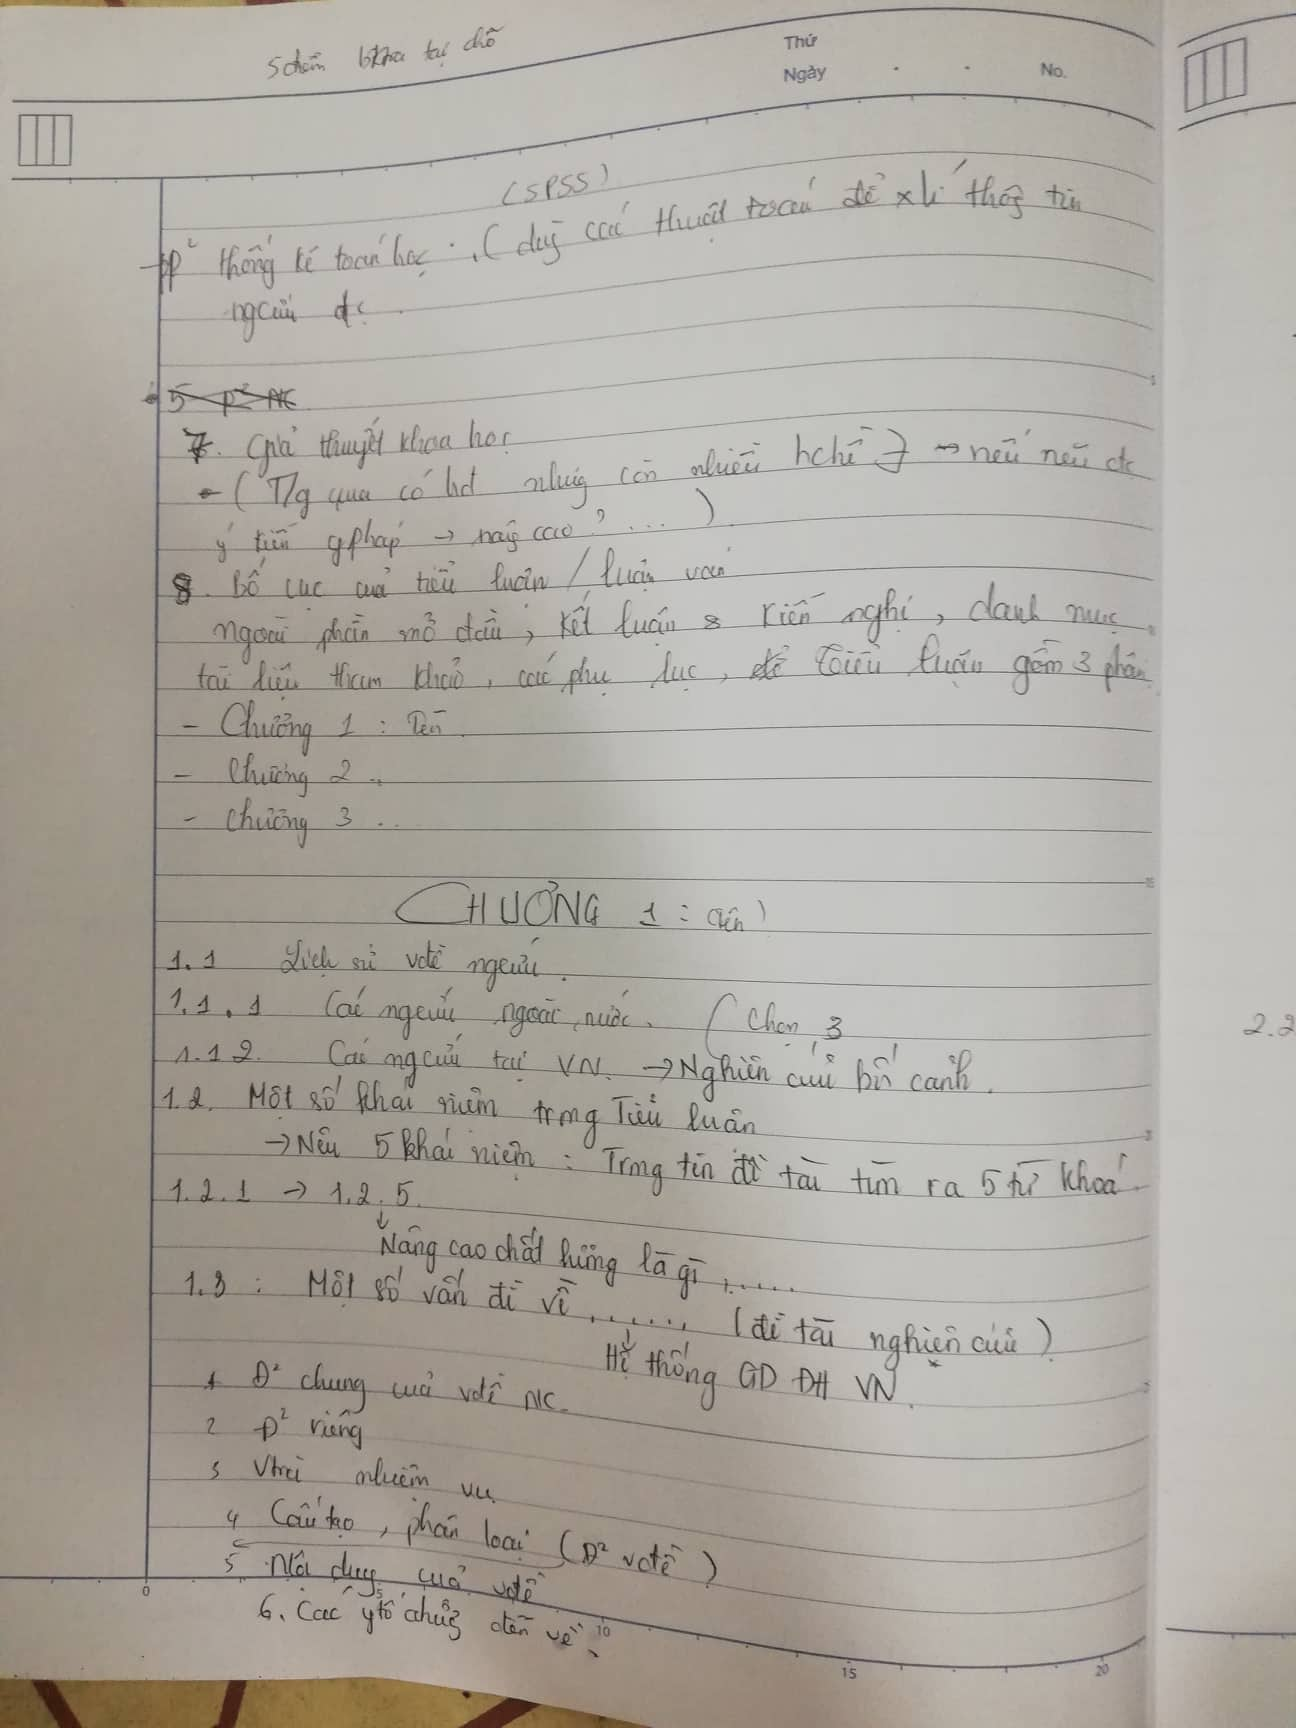 5 điểm bkhoa tại chỗ
Thứ
Ngày
No.
(SPSS)
-p² thống kê toán học : (dùg các thuật toán để xlí thôg tin
ngcứu đc.
5 p² NC
7. Giả thuyết khoa học
- (T/g qua có hđ nhưg còn nhiều hchế } → nếu nếu đc
ý kiến gpháp → nâg cao ? ....)
8. Bố cục của tiểu luận / luận văn
ngoài phần mở đầu, kết luận & kiến nghị, danh mục
tài liệu tham khảo, các phụ lục, đề Tiểu luận gồm 3 phần
- Chương 1 : Tên
- Chương 2 ..
- Chương 3 ..
CHƯƠNG 1 :
1.1 Lịch sử vđề ngcứu.
1.1.1 Các ngcứu ngoài nước. (Chọn 3
1.1.2. Các ngcứu tại VN. → Nghiên cứu bối cảnh.
1.2. Một số khái niệm trong Tiểu luận
→ Nêu 5 khái niệm : Trong tên đề tài tìm ra 5 từ khoá.
1.2.1 → 1.2.5.
↓ Nâng cao chất lượng là gì, .....
1.3 : Một số vấn đề về ....... (đề tài nghiên cứu)
Hệ thống GD ĐH VN.
1 Đ² chung của vđề NC.
2 Đ² riêng
3 Vtrí nhiệm vụ
4 Cấu tạo, phân loại (Đ² vđề)
5 Nội dung của vđề
6. Các ytố ảhưởg đến vđề
2.2
0
5
10
15
20